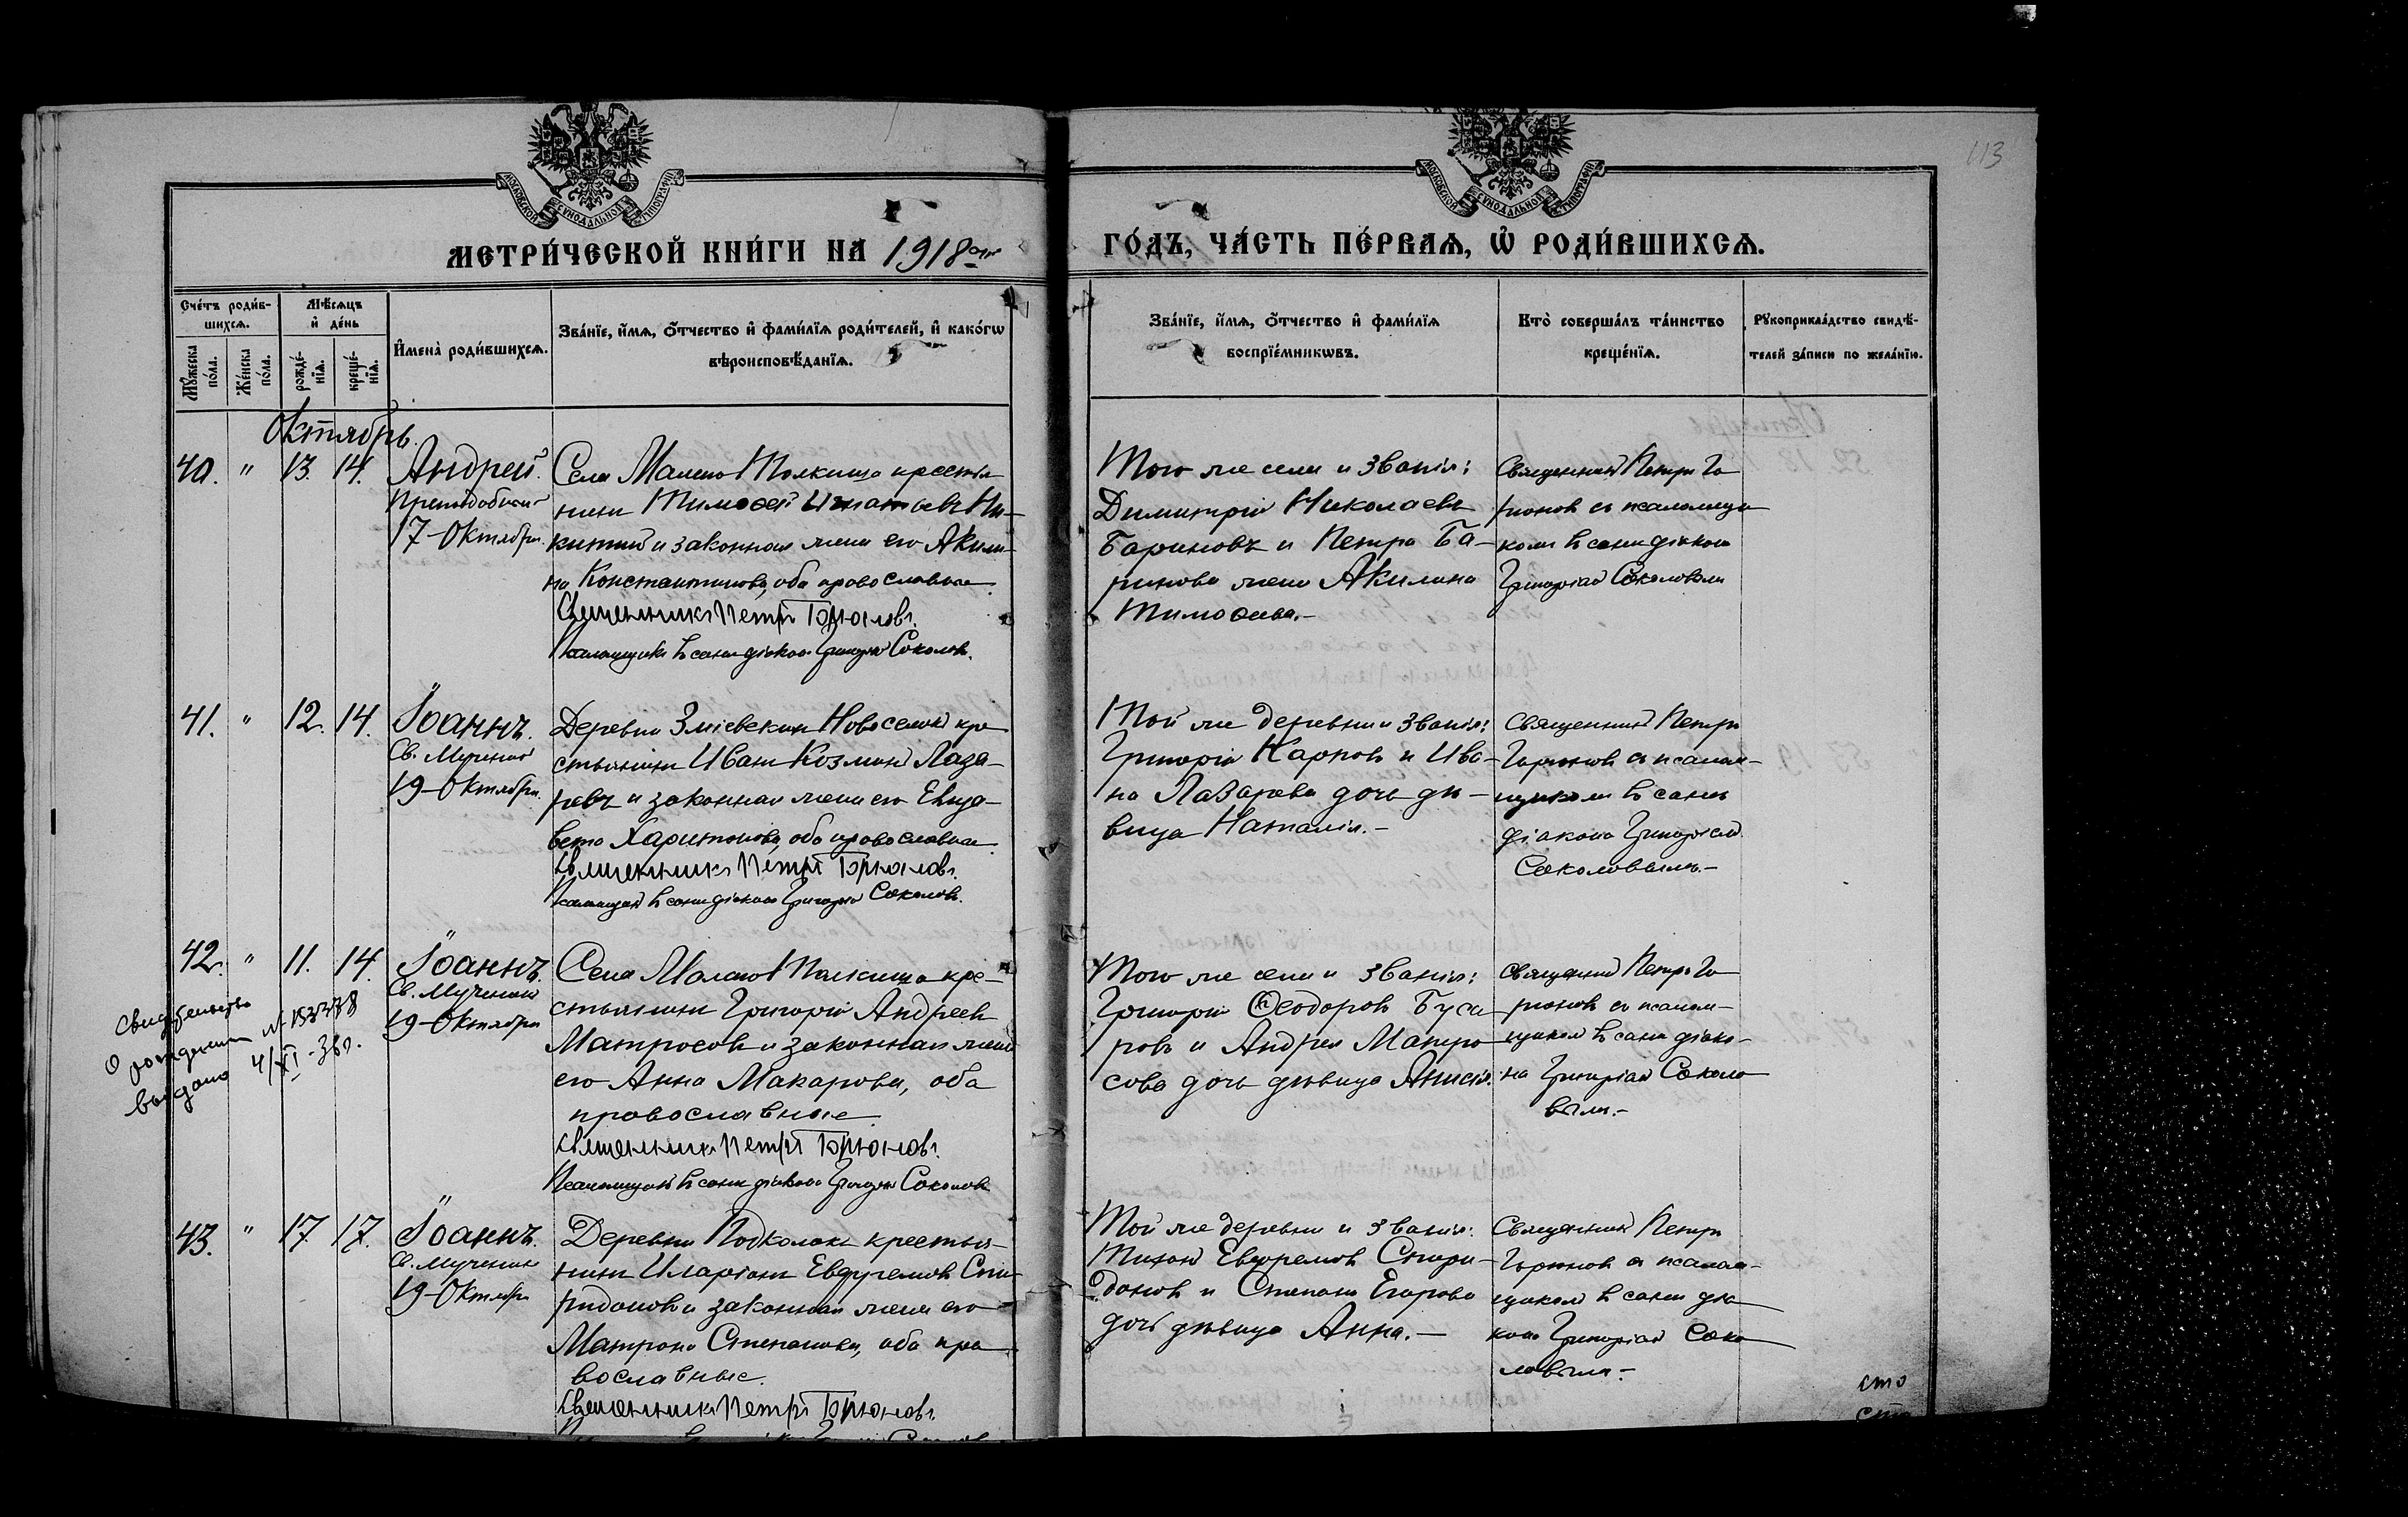 113
МОСКОВСКОЙ СУНОДАЛЬНОЙ ТИПОГРАФІИ
МОСКОВСКОЙ СУНОДАЛЬНОЙ ТИПОГРАФІИ
МЕТРИ́ЧЕСКОЙ КНИ́ГИ НА 1918 ГО́ДЪ, ЧА́СТЬ ПЕ́РВАѦ, Ѽ РОДИ́ВШИХСѦ.
Сче́тъ роди́в-
шихсѧ.
Мꙋ́жеска по́ла.
Же́нска по́ла.
Мѣ́сѧцъ
и҆ де́нь
рожде́-
нїѧ.
креще́-
нїѧ.
И҆мена̀ роди́вшихсѧ.
Зва́нїе, и҆́мѧ, ѻ҆́тчество и҆ фами́лїѧ роди́телей, и҆ како́гѡ
вѣроисповѣ́данїѧ.
Зва́нїе, и҆́мѧ, ѻ҆́тчество и҆ фами́лїѧ
воспрїе́мникѡвъ.
Кто̀ соверша́лъ та́инство
креще́нїѧ.
Рꙋкоприкла́дство свидѣ́-
телей за́писи по жела́нїю.
Октябрь.
40. " 13. 14. Андрей
Преподобный
17 Октября.
Села Малаго Полкища крестья
нинъ Тимоѳей Игнатьевъ Ни-
китин и законная жена его Акили-
на Константинова, оба православные
Священникъ Петръ Горюновъ.
Псаломщикъ въ санѣ діакона Григорій Соколовъ.
Того же села и званія:
Димитрій Николаевъ
Бариновъ и Петра Ба-
ринова жена Акилина
Тимоѳеева.-
Священникъ Петръ Го
рюновъ съ псаломщи
комъ въ санѣ діакона
Григоріемъ Соколовымъ
41. " 12. 14. Іоаннъ.
Св. Мученикъ
19 Октября.
Деревни Новоселокъ кре
стьянинъ Иванъ Козминъ Лаза-
ревъ и законная жена его Елиза-
вета Харитонова, оба православные.
Священникъ Петръ Горюновъ.
Псаломщикъ въ санѣ діакона Григорій Соколовъ.
Той же деревни и званія:
Григорій Карповъ и Ива-
на Лазарева дочь дѣ-
вица Наталія.-
Священникъ Петръ
Горюновъ съ псалом-
щикомъ въ санѣ
діакона Григоріемъ
Соколовымъ.-
42. " 11. 14. Іоаннъ.
Св. Мученикъ
19 Октября
Свидетельство
о рождении № 153278
выдано 4/XI-38г.
Села Малаго Полкища кре-
стьянинъ Григорій Андреевъ
Матросовъ и законная жена
его Анна Макарова, оба
православные
Священникъ Петръ Горюновъ.
Псаломщикъ въ санѣ діакона Григорій Соколовъ
Того же села и званія:
Григорій Ѳеодоровъ Буса
ровъ и Андрея Матро
сова дочь дѣвица Анисія.
Священникъ Петръ Го
рюновъ съ псалом-
щикомъ въ санѣ діако-
на Григоріемъ Соколо
вымъ.-
43. " 17. 17. Іоаннъ.
Св. Мученикъ
19 Октября
Деревни Подколокъ крестья-
нинъ Иларіонъ Евфремовъ Спи-
ридоновъ и законная жена его
Матрона Степанова, оба пра
вославные.
Священникъ Петръ Горюновъ.
Той же деревни и званія:
Тихонъ Евфремовъ Спири-
доновъ и Степана Егорова
дочь дѣвица Анна.-
Священникъ Петръ
Горюновъ съ псалом-
щикомъ въ санѣ діа
кона Григоріемъ Соко
ловымъ.-
сто